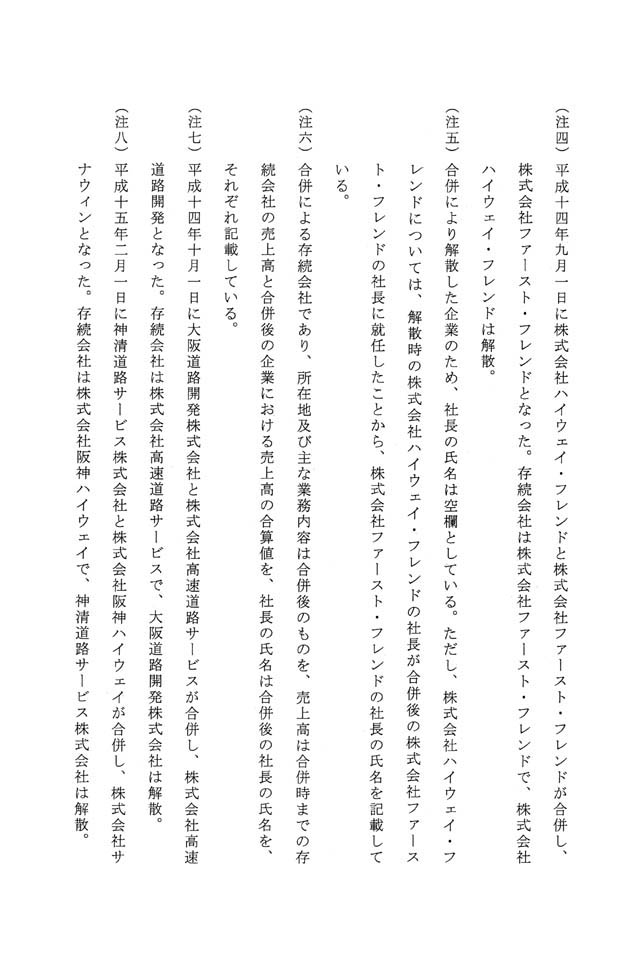 （注四）平成十四年九月一日に株式会社ハイウェイ・フレンドと株式会社ファースト・フレンドが合併し、
株式会社ファースト・フレンドとなった。存続会社は株式会社ファースト・フレンドで、株式会社
ハイウェイ・フレンドは解散。
（注五）合併により解散した企業のため、社長の氏名は空欄としている。ただし、株式会社ハイウェイ・フ
レンドについては、解散時の株式会社ハイウェイ・フレンドの社長が合併後の株式会社ファース
ト・フレンドの社長に就任したことから、株式会社ファースト・フレンドの社長の氏名を記載して
いる。
（注六）合併による存続会社であり、所在地及び主な業務内容は合併後のものを、売上高は合併時までの存
続会社の売上高と合併後の企業における売上高の合算値を、社長の氏名は合併後の社長の氏名を、
それぞれ記載している。
（注七）平成十四年十月一日に大阪道路開発株式会社と株式会社高速道路サービスが合併し、株式会社高速
道路開発となった。存続会社は株式会社高速道路サービスで、大阪道路開発株式会社は解散。
（注八）平成十五年二月一日に神清道路サービス株式会社と株式会社阪神ハイウェイが合併し、株式会社サ
ナウィンとなった。存続会社は株式会社阪神ハイウェイで、神清道路サービス株式会社は解散。